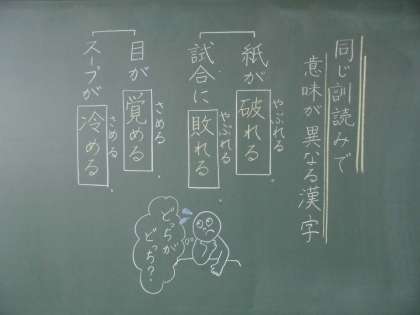 同じ訓読みで
意味が異なる漢字
紙が破れる。
やぶれる
試合に敗れる。
やぶれる
目が覚める。
さめる
スープが冷める。
さめる
どっちが
どっち?